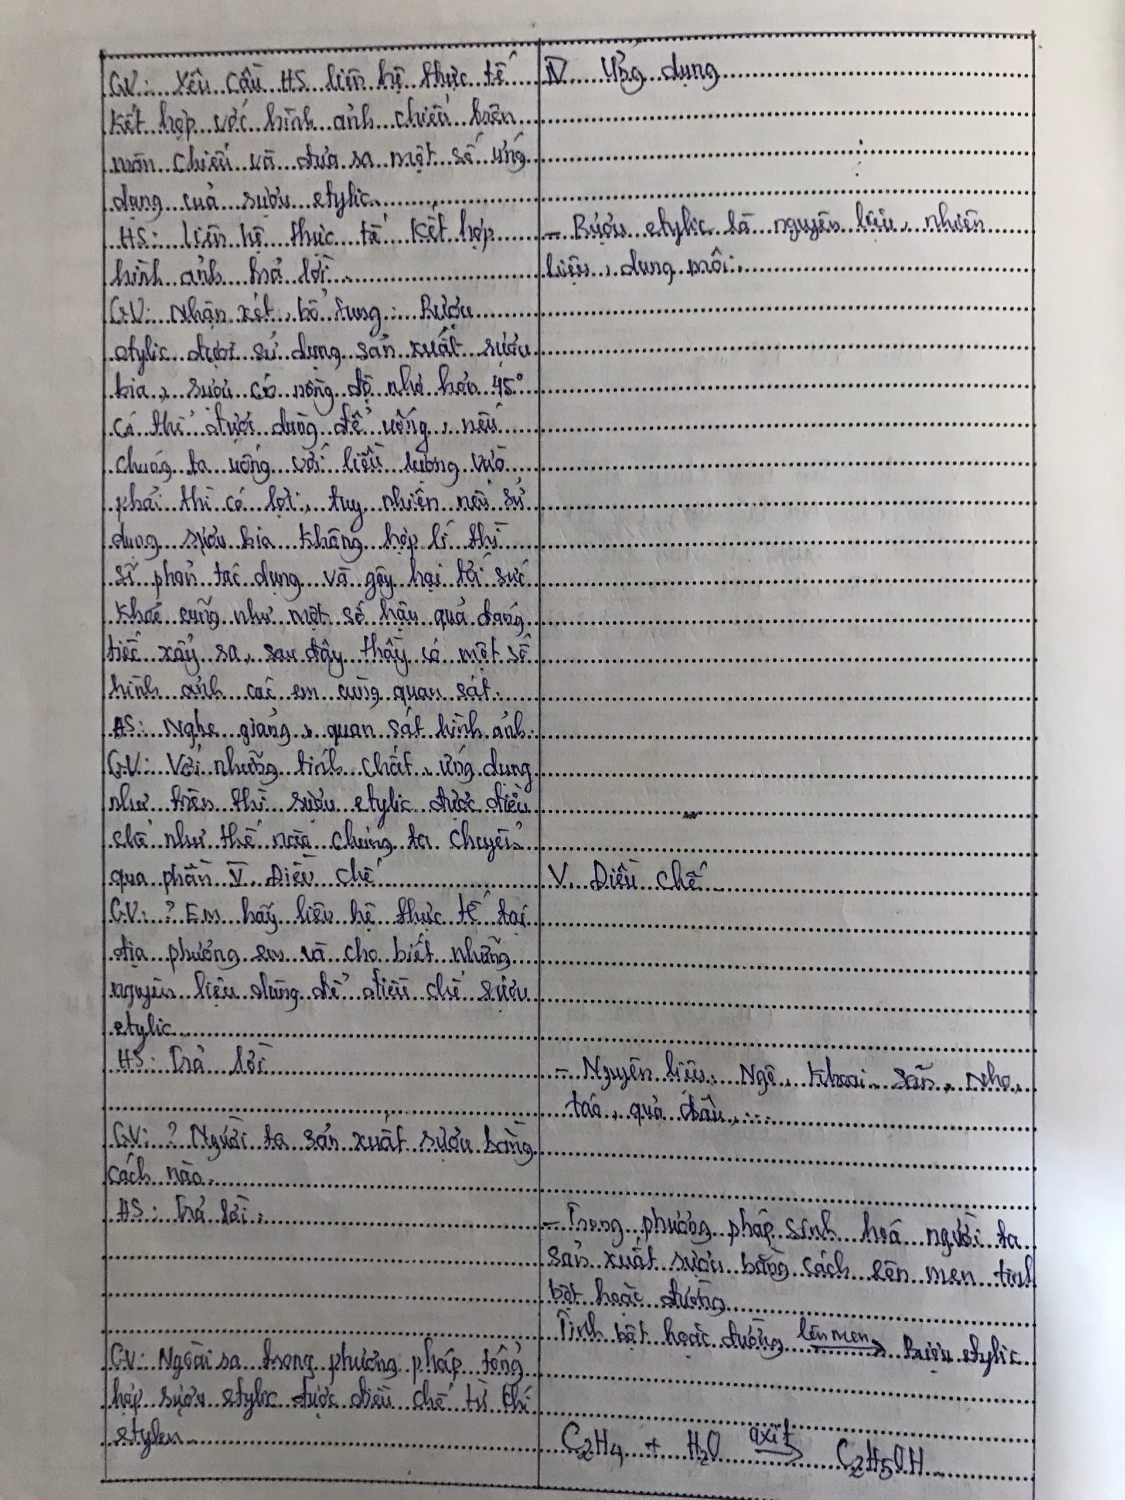 GV: Yêu cầu HS liên hệ thực tế
kết hợp với hình ảnh chiếu trên
màn chiếu và đưa ra một số ứng
dụng của rượu etylic.
HS: liên hệ thực tế kết hợp
hình ảnh trả lời.
GV: Nhận xét, bổ sung: Rượu
etylic được sử dụng sản xuất rượu
bia, rượu có nồng độ nhỏ hơn 45°
có thể được dùng để uống, nếu
chúng ta uống với liều lượng vừa
phải thì có lợi, tuy nhiên nếu sử
dụng rượu bia không hợp lí thì
sẽ phản tác dụng và gây hại tới sức
khoẻ cũng như một số hậu quả đáng
tiếc xảy ra, sau đây thầy có một số
hình ảnh các em cùng quan sát.
HS: Nghe giảng, quan sát hình ảnh.
GV: Với những tính chất, ứng dụng
như trên thì rượu etylic được điều
chế như thế nào chúng ta chuyển
qua phần V. Điều chế
GV: ? Em hãy liên hệ thực tế tại
địa phương em và cho biết những
nguyên liệu dùng để điều chế rượu
etylic.
HS: Trả lời
GV: ? Người ta sản xuất rượu bằng
cách nào.
HS: Trả lời:
GV: Ngoài ra trong phương pháp tổng
hợp rượu etylic được điều chế từ khí
etylen
IV. Ứng dụng
- Rượu etylic là nguyên liệu, nhiên
liệu, dung môi.
V. Điều chế
- Nguyên liệu: Ngô, khoai sắn, nho,
táo, quả dâu,...
- Trong phương pháp sinh hoá người ta
sản xuất rượu bằng cách lên men tinh
bột hoặc đường
Tinh bột hoặc đường lên men → Rượu etylic
C2H4 + H2O axit → C2H5OH